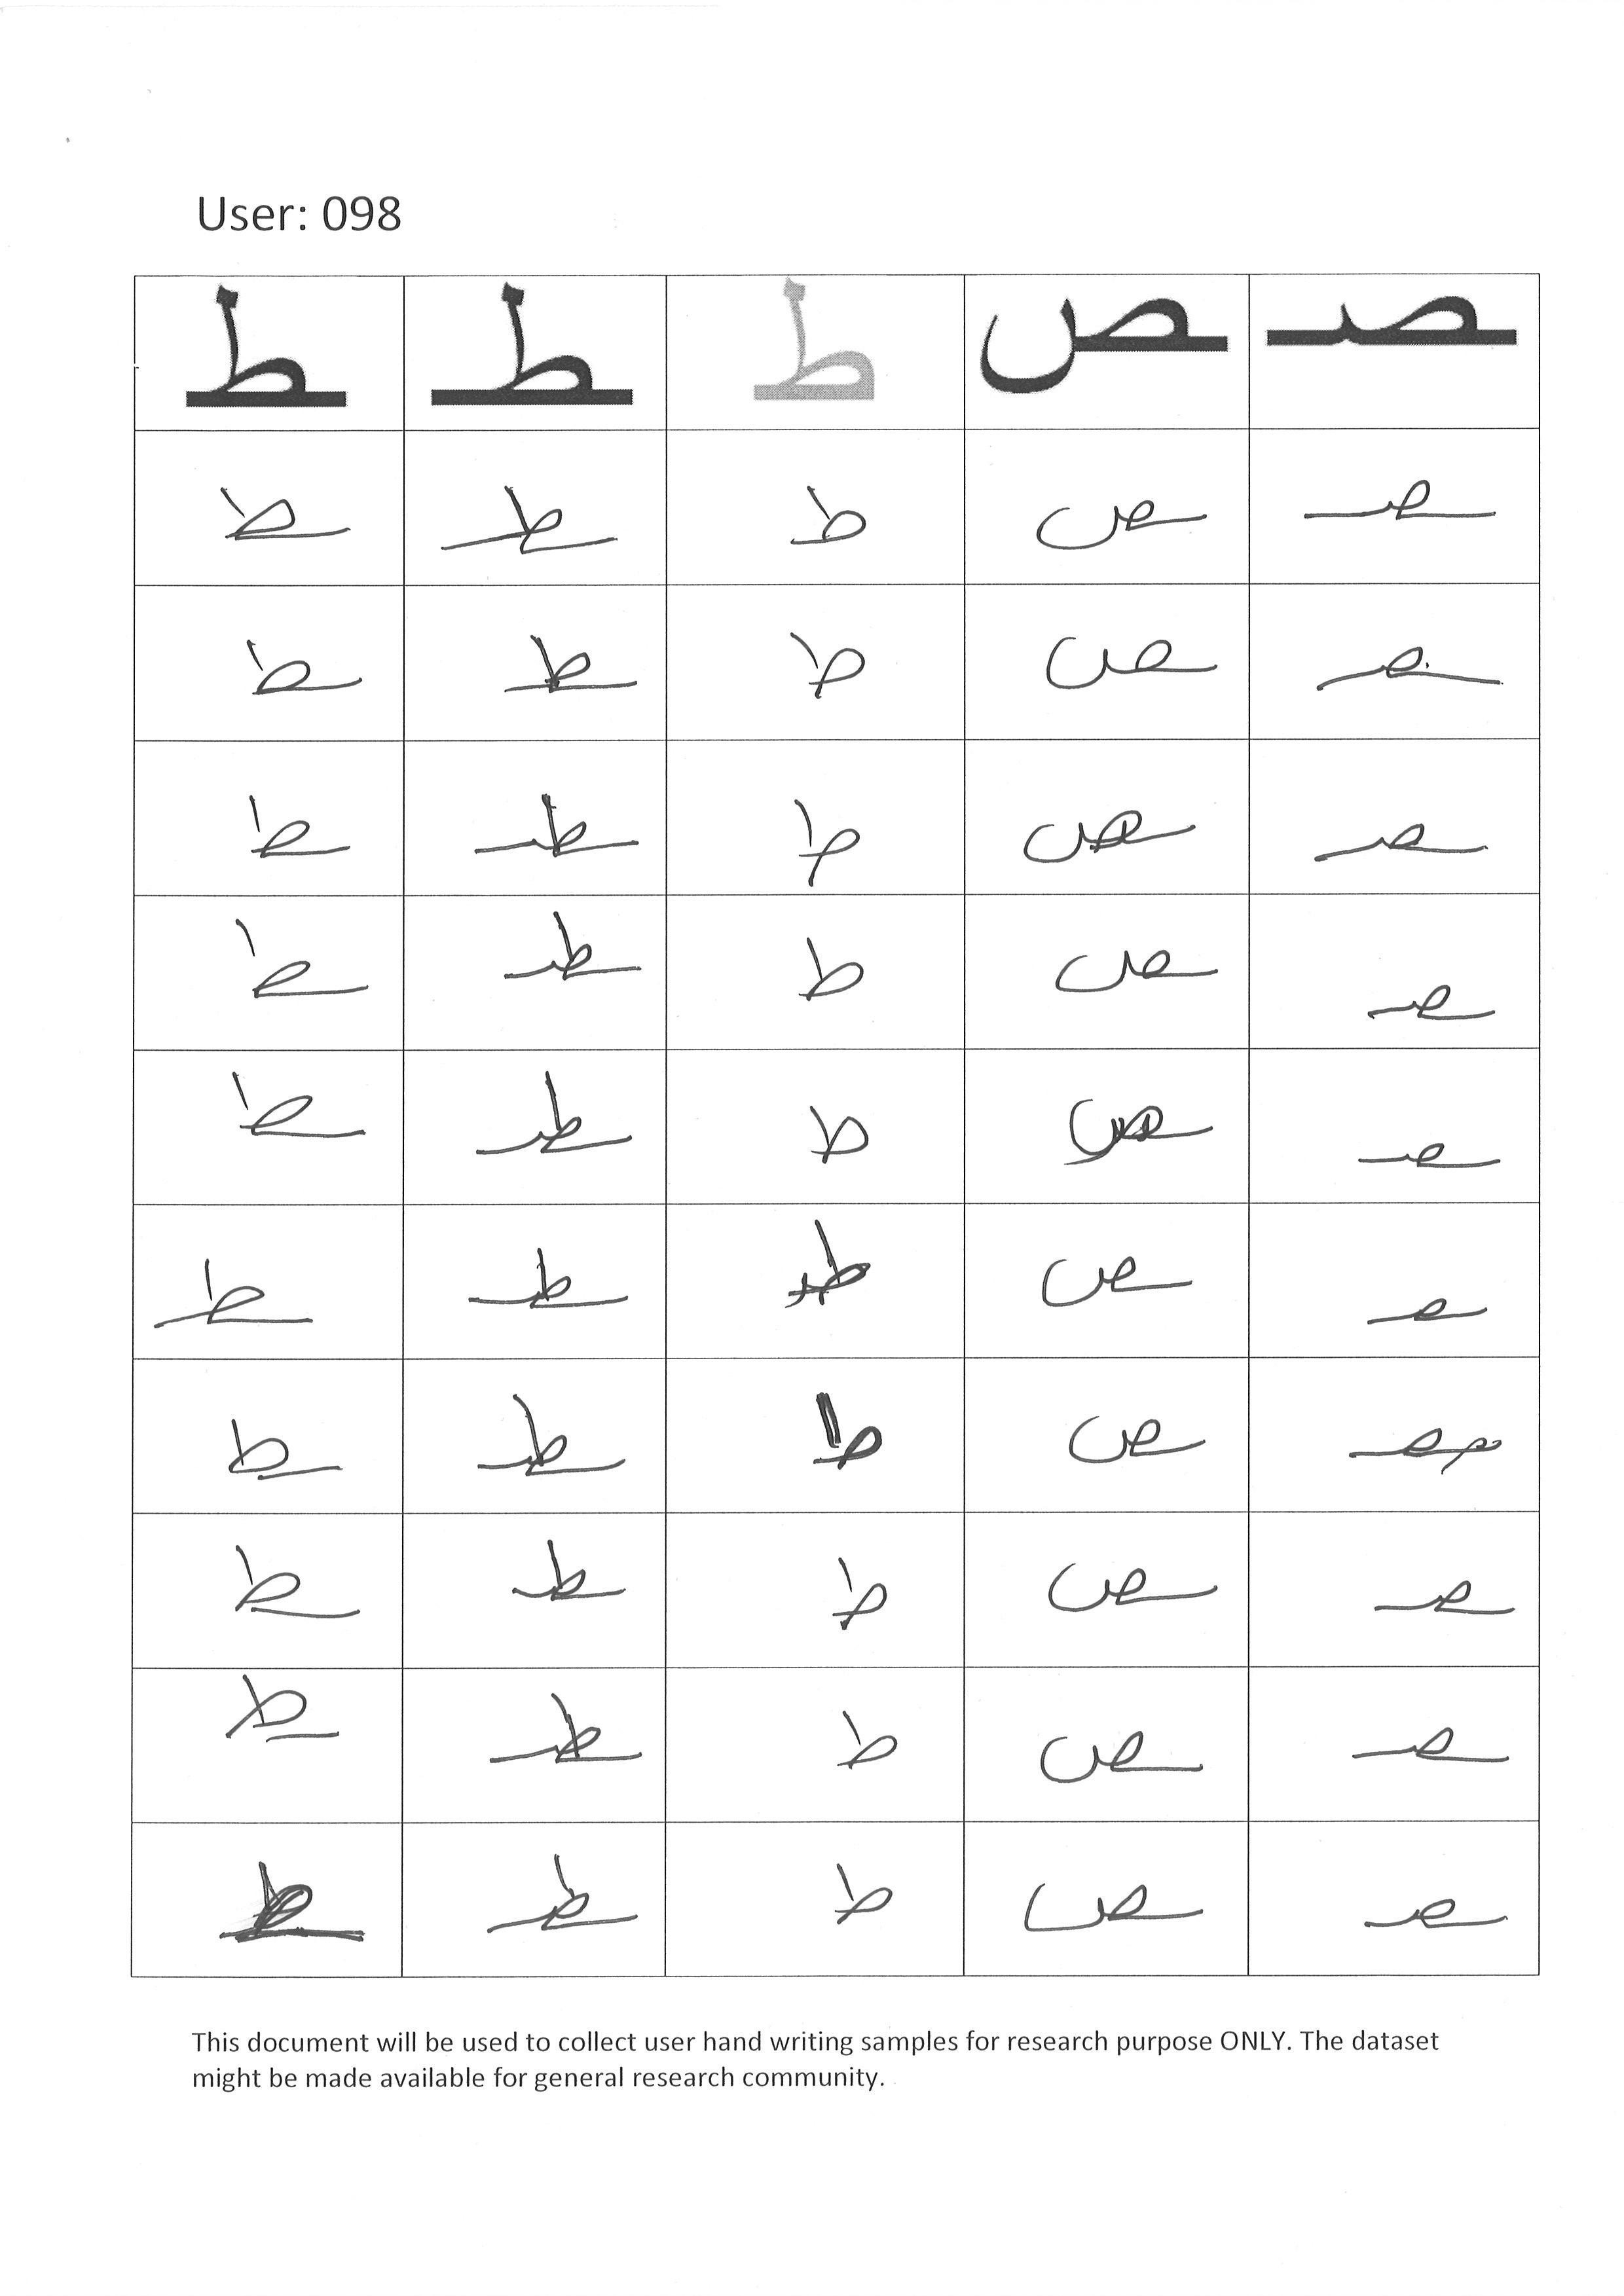 User: 098
ـط ـطـ ط ـص ـصـ
ـط ـطـ ط ـص ـصـ
ـط ـطـ ط ـص ـصـ
ـط ـطـ ط ـص ـصـ
ـط ـطـ ط ـص ـصـ
ـط ـطـ ط ـص ـصـ
ـط ـطـ ط ـص ـصـ
ـط ـطـ ط ـص ـصـ
ـط ـطـ ط ـص ـصـ
ـط ـطـ ط ـص ـصـ
ـط ـطـ ط ـص ـصـ
This document will be used to collect user hand writing samples for research purpose ONLY. The dataset
might be made available for general research community.